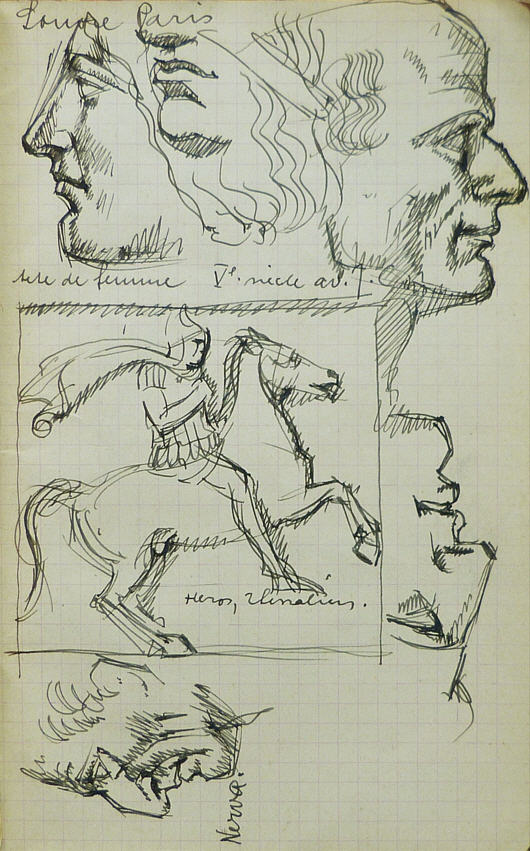 Louvre Paris
tete de femme Vᵉ. siècle av. J.
Heros,
Nerva.